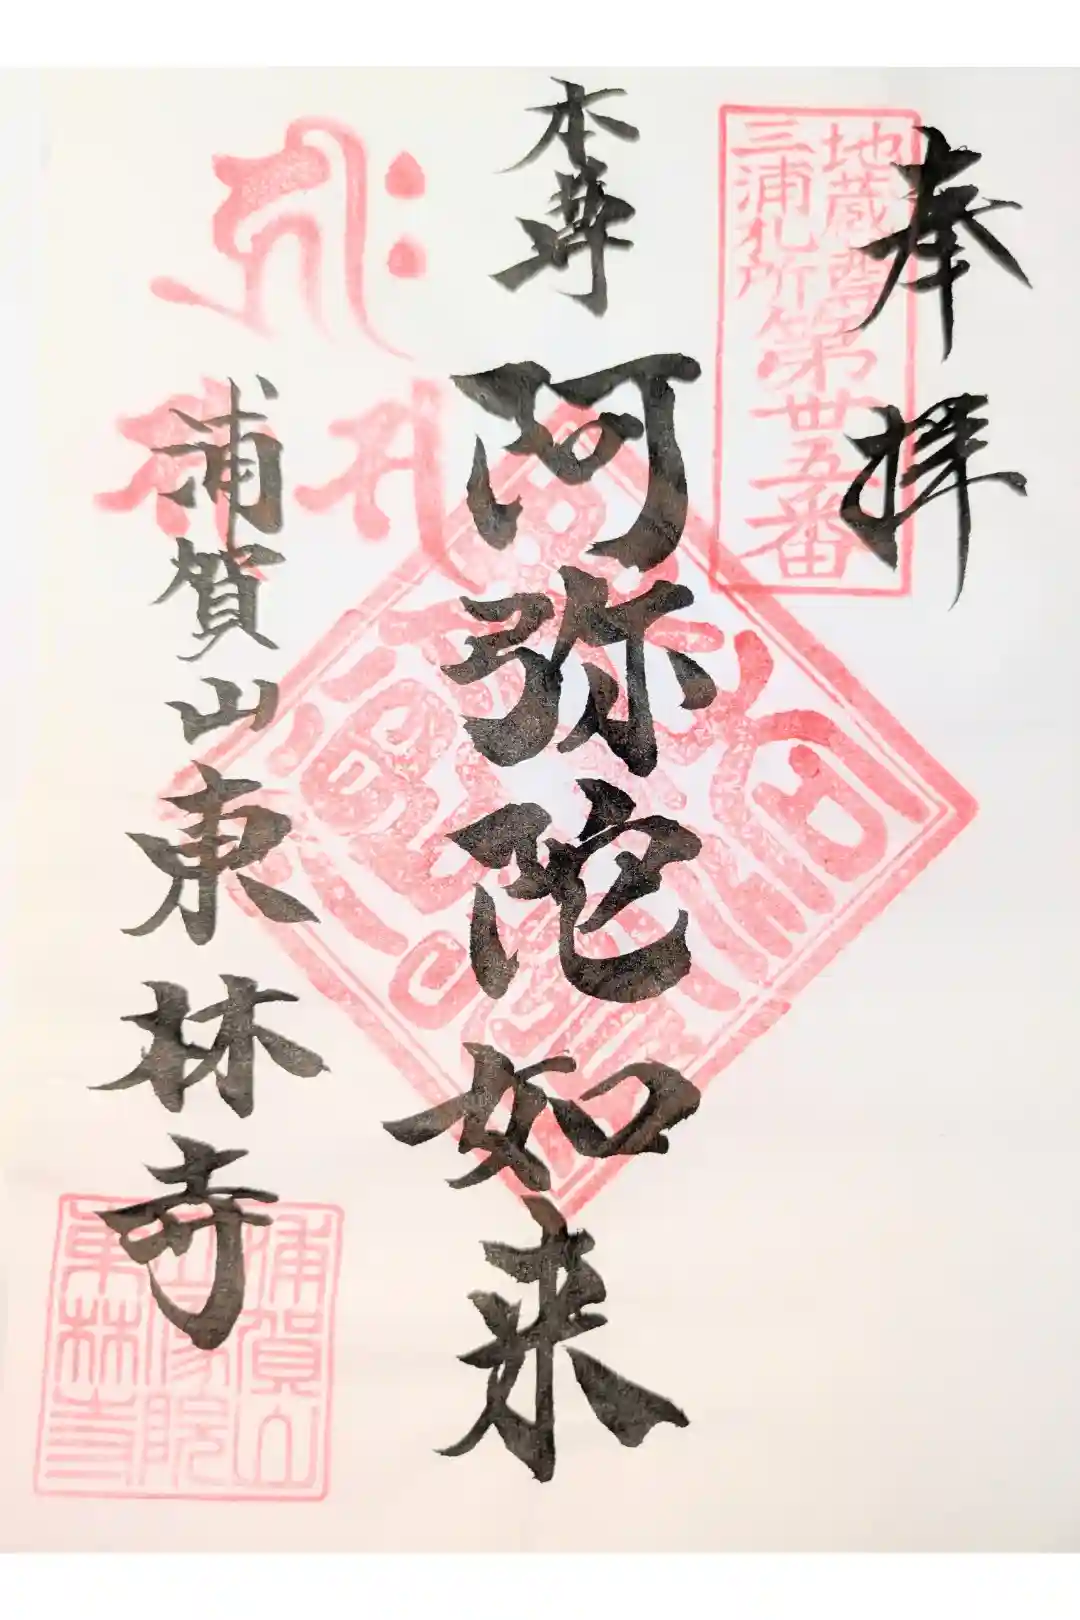 奉拝
地蔵尊
三浦札所
第卅五番
本尊
阿弥陀如来
浦賀山東林寺
浦賀山
東林寺